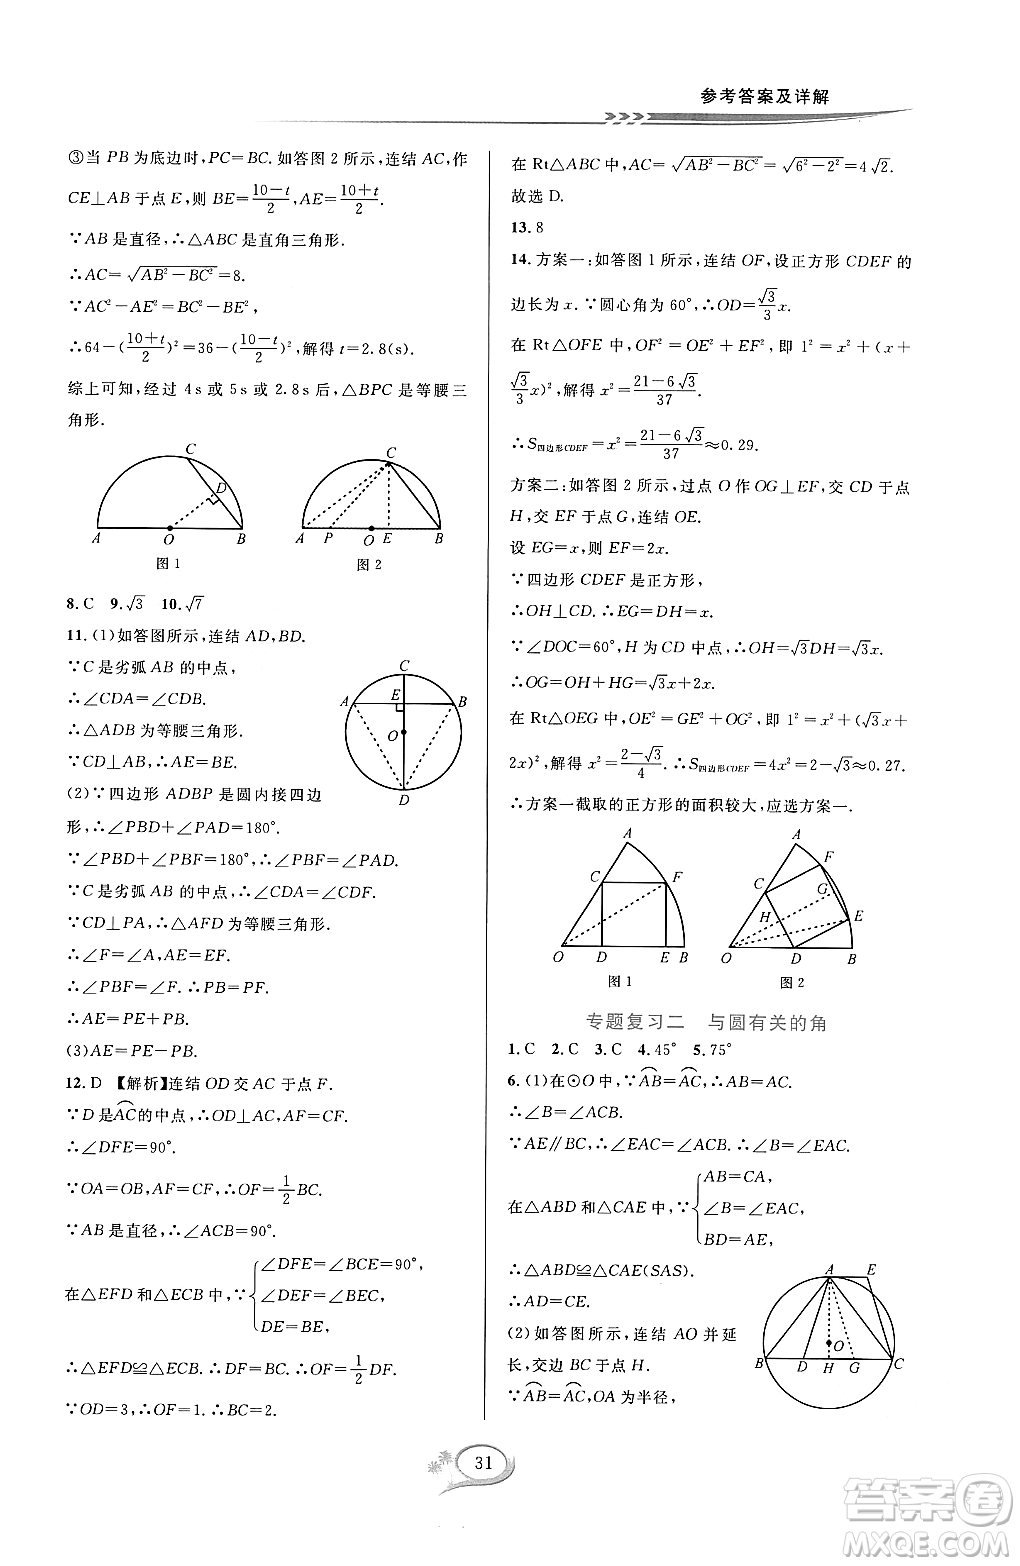 参考答案及详解
③当 PB 为底边时,PC=BC. 如答图 2 所示,连结 AC,作
CE⊥AB 于点 E,则 BE=\frac{10-t}{2},AE=\frac{10+t}{2}.
∵AB 是直径,∴△ABC 是直角三角形.
∴AC=\sqrt{AB²-BC²}=8.
∵AC²-AE²=BC²-BE²,
∴64-(\frac{10+t}{2})²=36-(\frac{10-t}{2})²,解得 t=2.8(s).
综上可知,经过 4 s 或 5 s 或 2.8 s 后,△BPC 是等腰三
角形.
C
D
A O B
图 1
C
A P O E B
图 2
8. C 9. √3 10. √7
11. (1)如答图所示,连结 AD,BD.
∵C 是劣弧 AB 的中点,
∴∠CDA=∠CDB.
∴△ADB 为等腰三角形.
∵CD⊥AB,∴AE=BE.
(2)∵四边形 ADBP 是圆内接四边
形,∴∠PBD+∠PAD=180°.
C
A E B
O
D
∵∠PBD+∠PBF=180°,∴∠PBF=∠PAD.
∵C 是劣弧 AB 的中点,∴∠CDA=∠CDF.
∵CD⊥PA,∴△AFD 为等腰三角形.
∴∠F=∠A,AE=EF.
∴∠PBF=∠F. ∴PB=PF.
∴AE=PE+PB.
(3)AE=PE-PB.
12. D 【解析】连结 OD 交 AC 于点 F.
∵D 是\overset{⌒}{AC}的中点,∴OD⊥AC,AF=CF.
∴∠DFE=90°.
∵OA=OB,AF=CF,∴OF=\frac{1}{2}BC.
∵AB 是直径,∴∠ACB=90°.
在△EFD 和△ECB 中,∵{∠DFE=∠BCE=90°,
∠DEF=∠BEC,
DE=BE,
∴△EFD≌△ECB. ∴DF=BC. ∴OF=\frac{1}{2}DF.
∵OD=3,∴OF=1. ∴BC=2.
在 Rt△ABC 中,AC=\sqrt{AB²-BC²}=\sqrt{6²-2²}=4√2.
故选 D.
13. 8
14. 方案一:如答图 1 所示,连结 OF,设正方形 CDEF 的
边长为 x. ∵圆心角为 60°,∴OD=\frac{√3}{3}x.
在 Rt△OFE 中,OF²=OE²+EF²,即 1²=x²+(x+
\frac{√3}{3}x)²,解得 x²=\frac{21-6√3}{37}.
∴S四边形CDEF=x²=\frac{21-6√3}{37}≈0.29.
方案二:如答图 2 所示,过点 O 作 OG⊥EF,交 CD 于点
H,交 EF 于点 G,连结 OE.
设 EG=x,则 EF=2x.
∵四边形 CDEF 是正方形,
∴OH⊥CD. ∴EG=DH=x.
∵∠DOC=60°,H 为 CD 中点,∴OH=√3DH=√3x.
∴OG=OH+HG=√3x+2x.
在 Rt△OEG 中,OE²=GE²+OG²,即 1²=x²+(√3x+
2x)²,解得 x²=\frac{2-√3}{4}. ∴S四边形CDEF=4x²=2-√3≈0.27.
∴方案一截取的正方形的面积较大,应选方案一.
A
C F
O D E B
图 1
A
F
C G
H E
O D B
图 2
专题复习二 与圆有关的角
1. C 2. C 3. C 4. 45° 5. 75°
6. (1)在⊙O 中,∵\overset{⌒}{AB}=\overset{⌒}{AC},∴AB=AC.
∴∠B=∠ACB.
∵AE∥BC,∴∠EAC=∠ACB. ∴∠B=∠EAC.
在△ABD 和△CAE 中,∵{AB=CA,
∠B=∠EAC,
BD=AE,
∴△ABD≌△CAE(SAS).
∴AD=CE.
(2)如答图所示,连结 AO 并延
长,交边 BC 于点 H.
∵\overset{⌒}{AB}=\overset{⌒}{AC},OA 为半径,
A E
O
B D H G C
31
答案圈
MXQE.COM